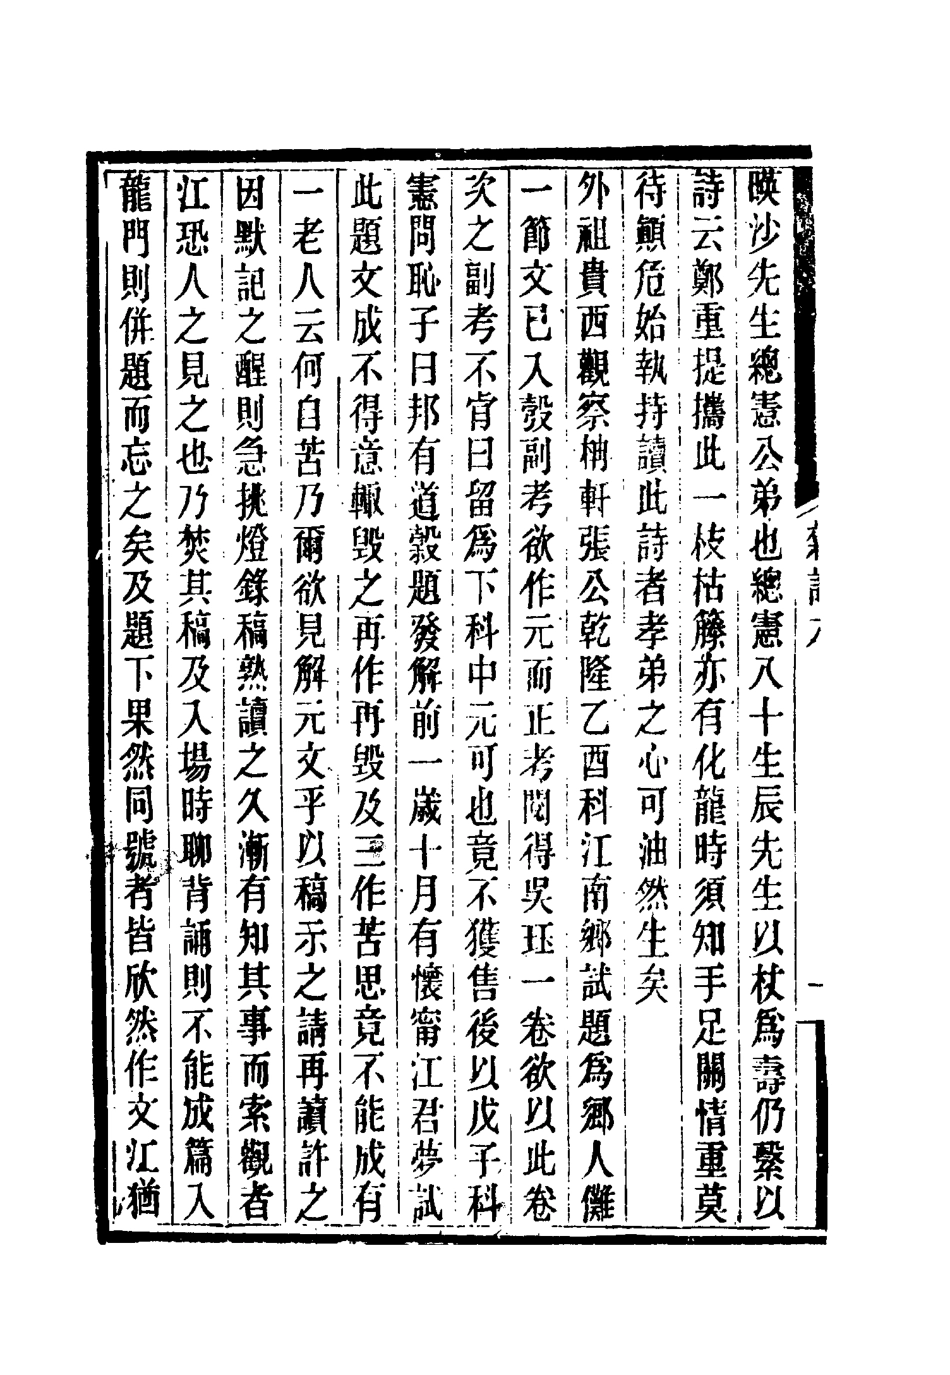 暎沙先生總憲公弟也總憲八十生辰先生以杖爲壽仍繫以
詩云鄭重提攜此一枝枯籐亦有化龍時須知手足關情重莫
待顚危始執持讀此詩者孝弟之心可油然生矣
外祖貴西觀察柟軒張公乾隆乙酉科江南鄉試題爲鄉人儺
一節文已入彀副考欲作元而正考閱得吳珏一卷欲以此卷
次之副考不肯曰留爲下科中元可也竟不獲售後以戊子科
憲問恥子曰邦有道穀題發解前一歲十月有懷甯江君夢試
此題文成不得意輙毀之再作再毀及三作苦思竟不能成有
一老人云何自苦乃爾欲見解元文乎以稿示之請再讀許之
因默記之醒則急挑燈錄稿熟讀之久漸有知其事而索觀者
江恐人之見之也乃焚其稿及入場時聊背誦則不能成篇入
龍門則併題而忘之矣及題下果然同號者皆欣然作文江猶